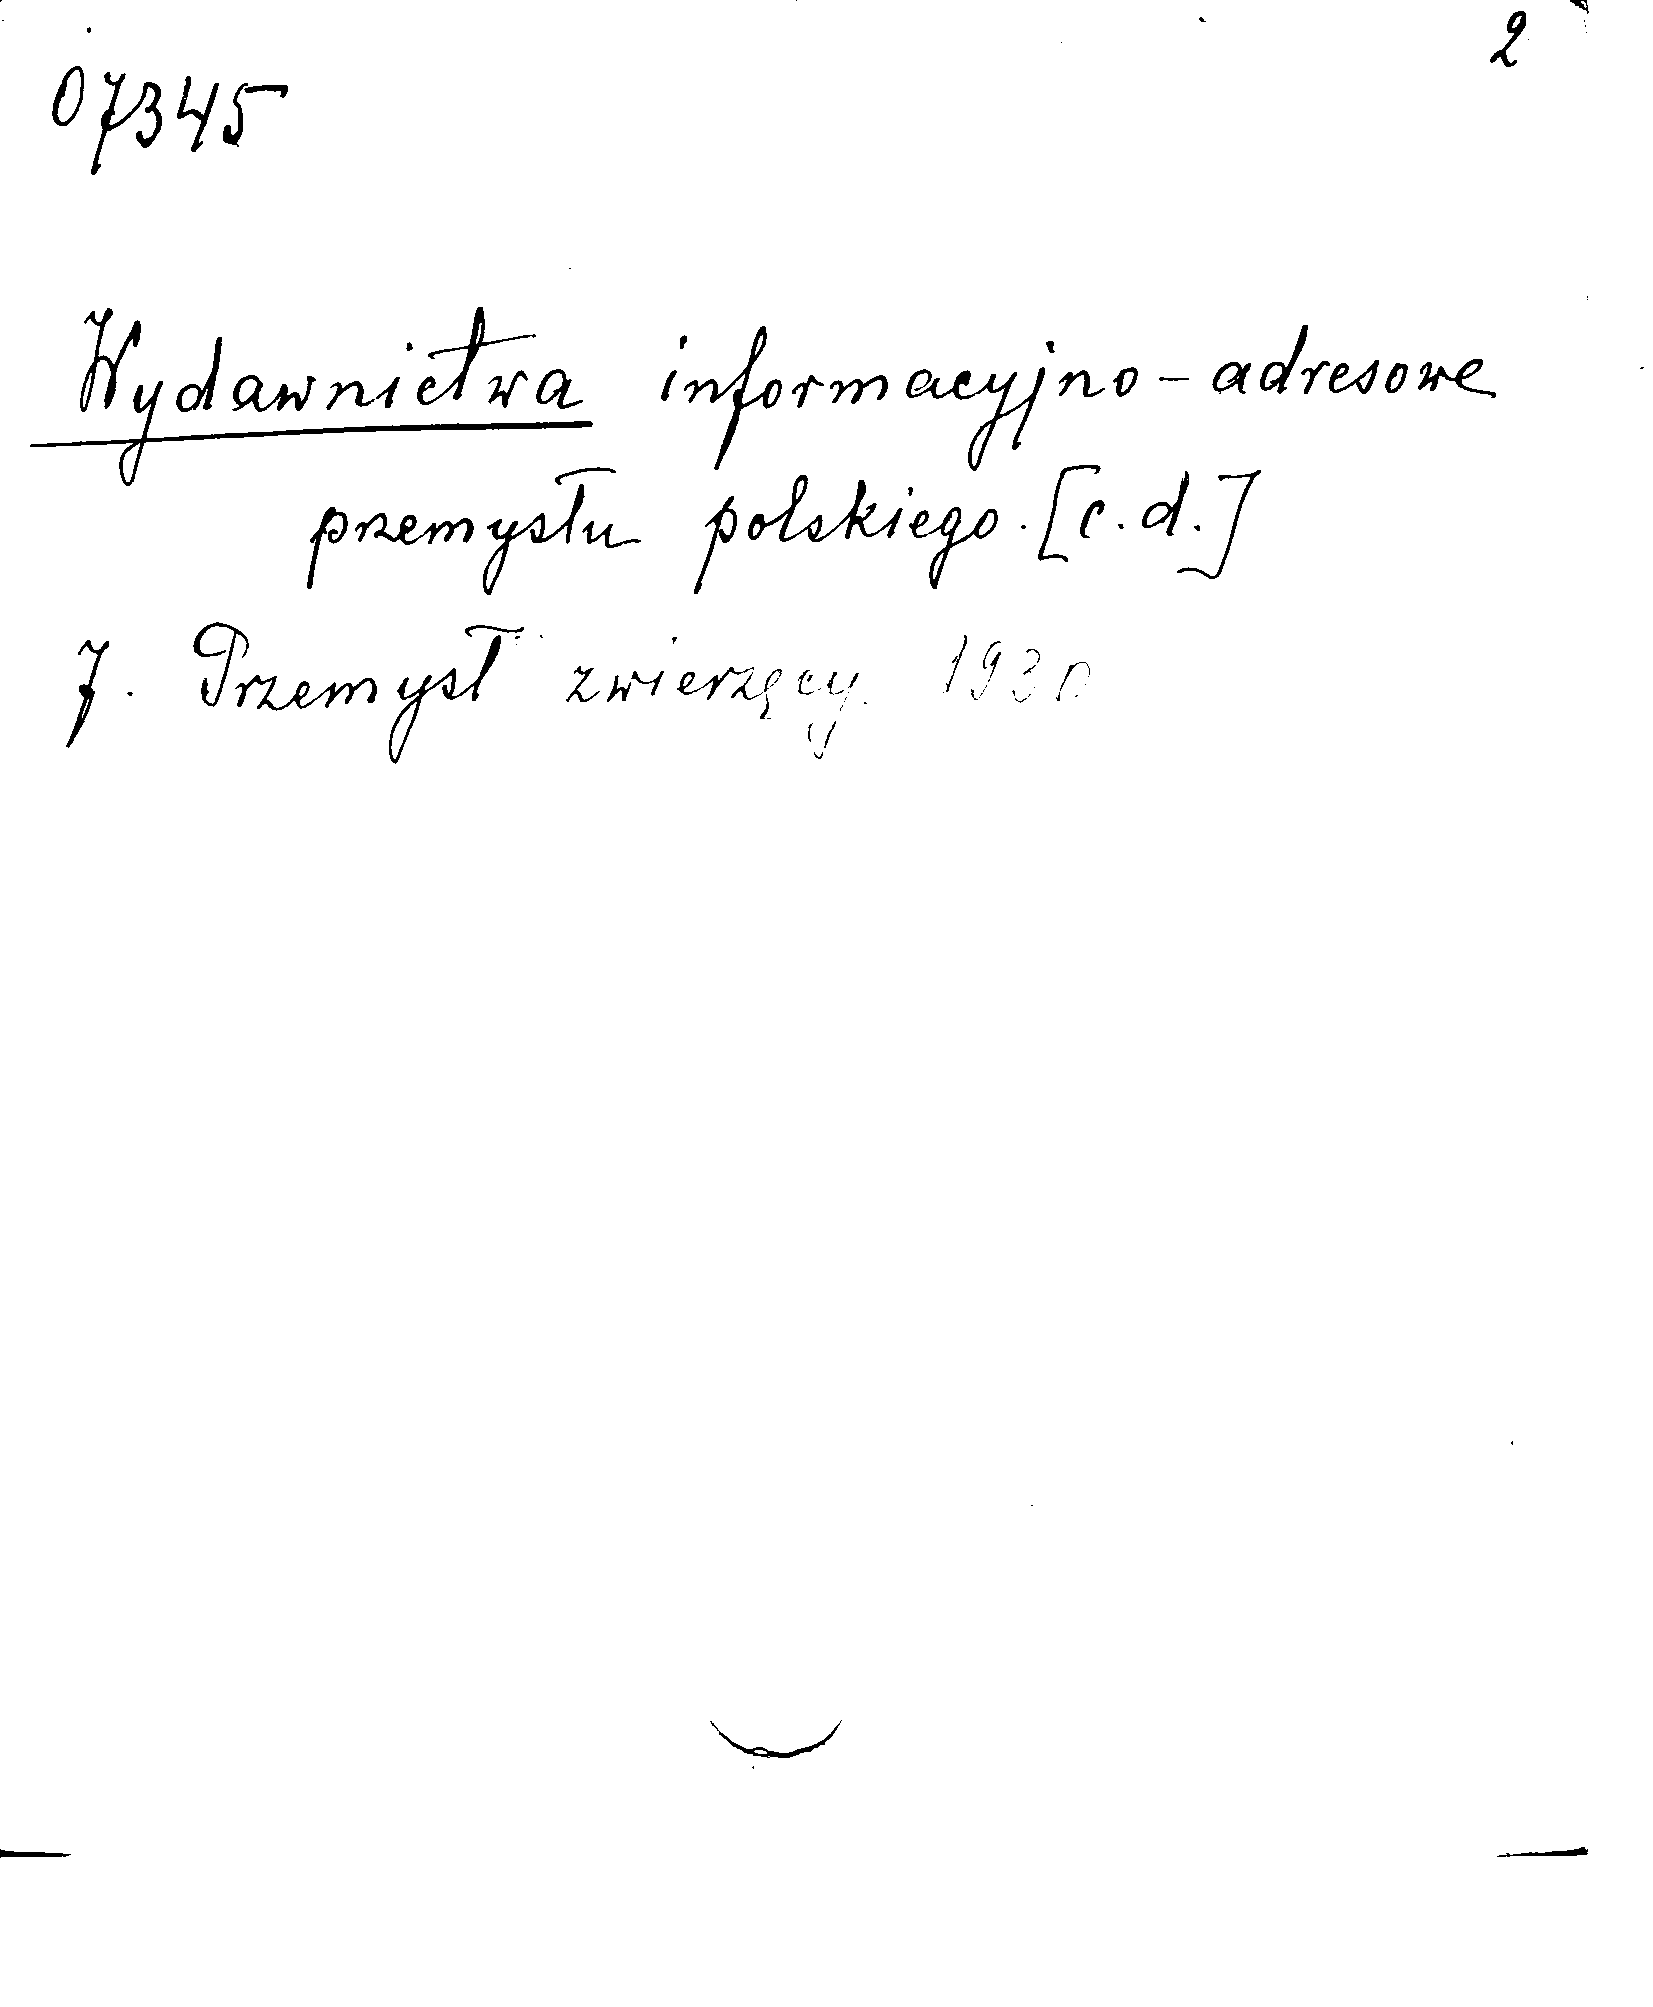 2
07345
Wydawnictwa informacyjno-adresowe
przemysłu polskiego. [c.d.]
7. Przemysł zwierzęcy. 1930